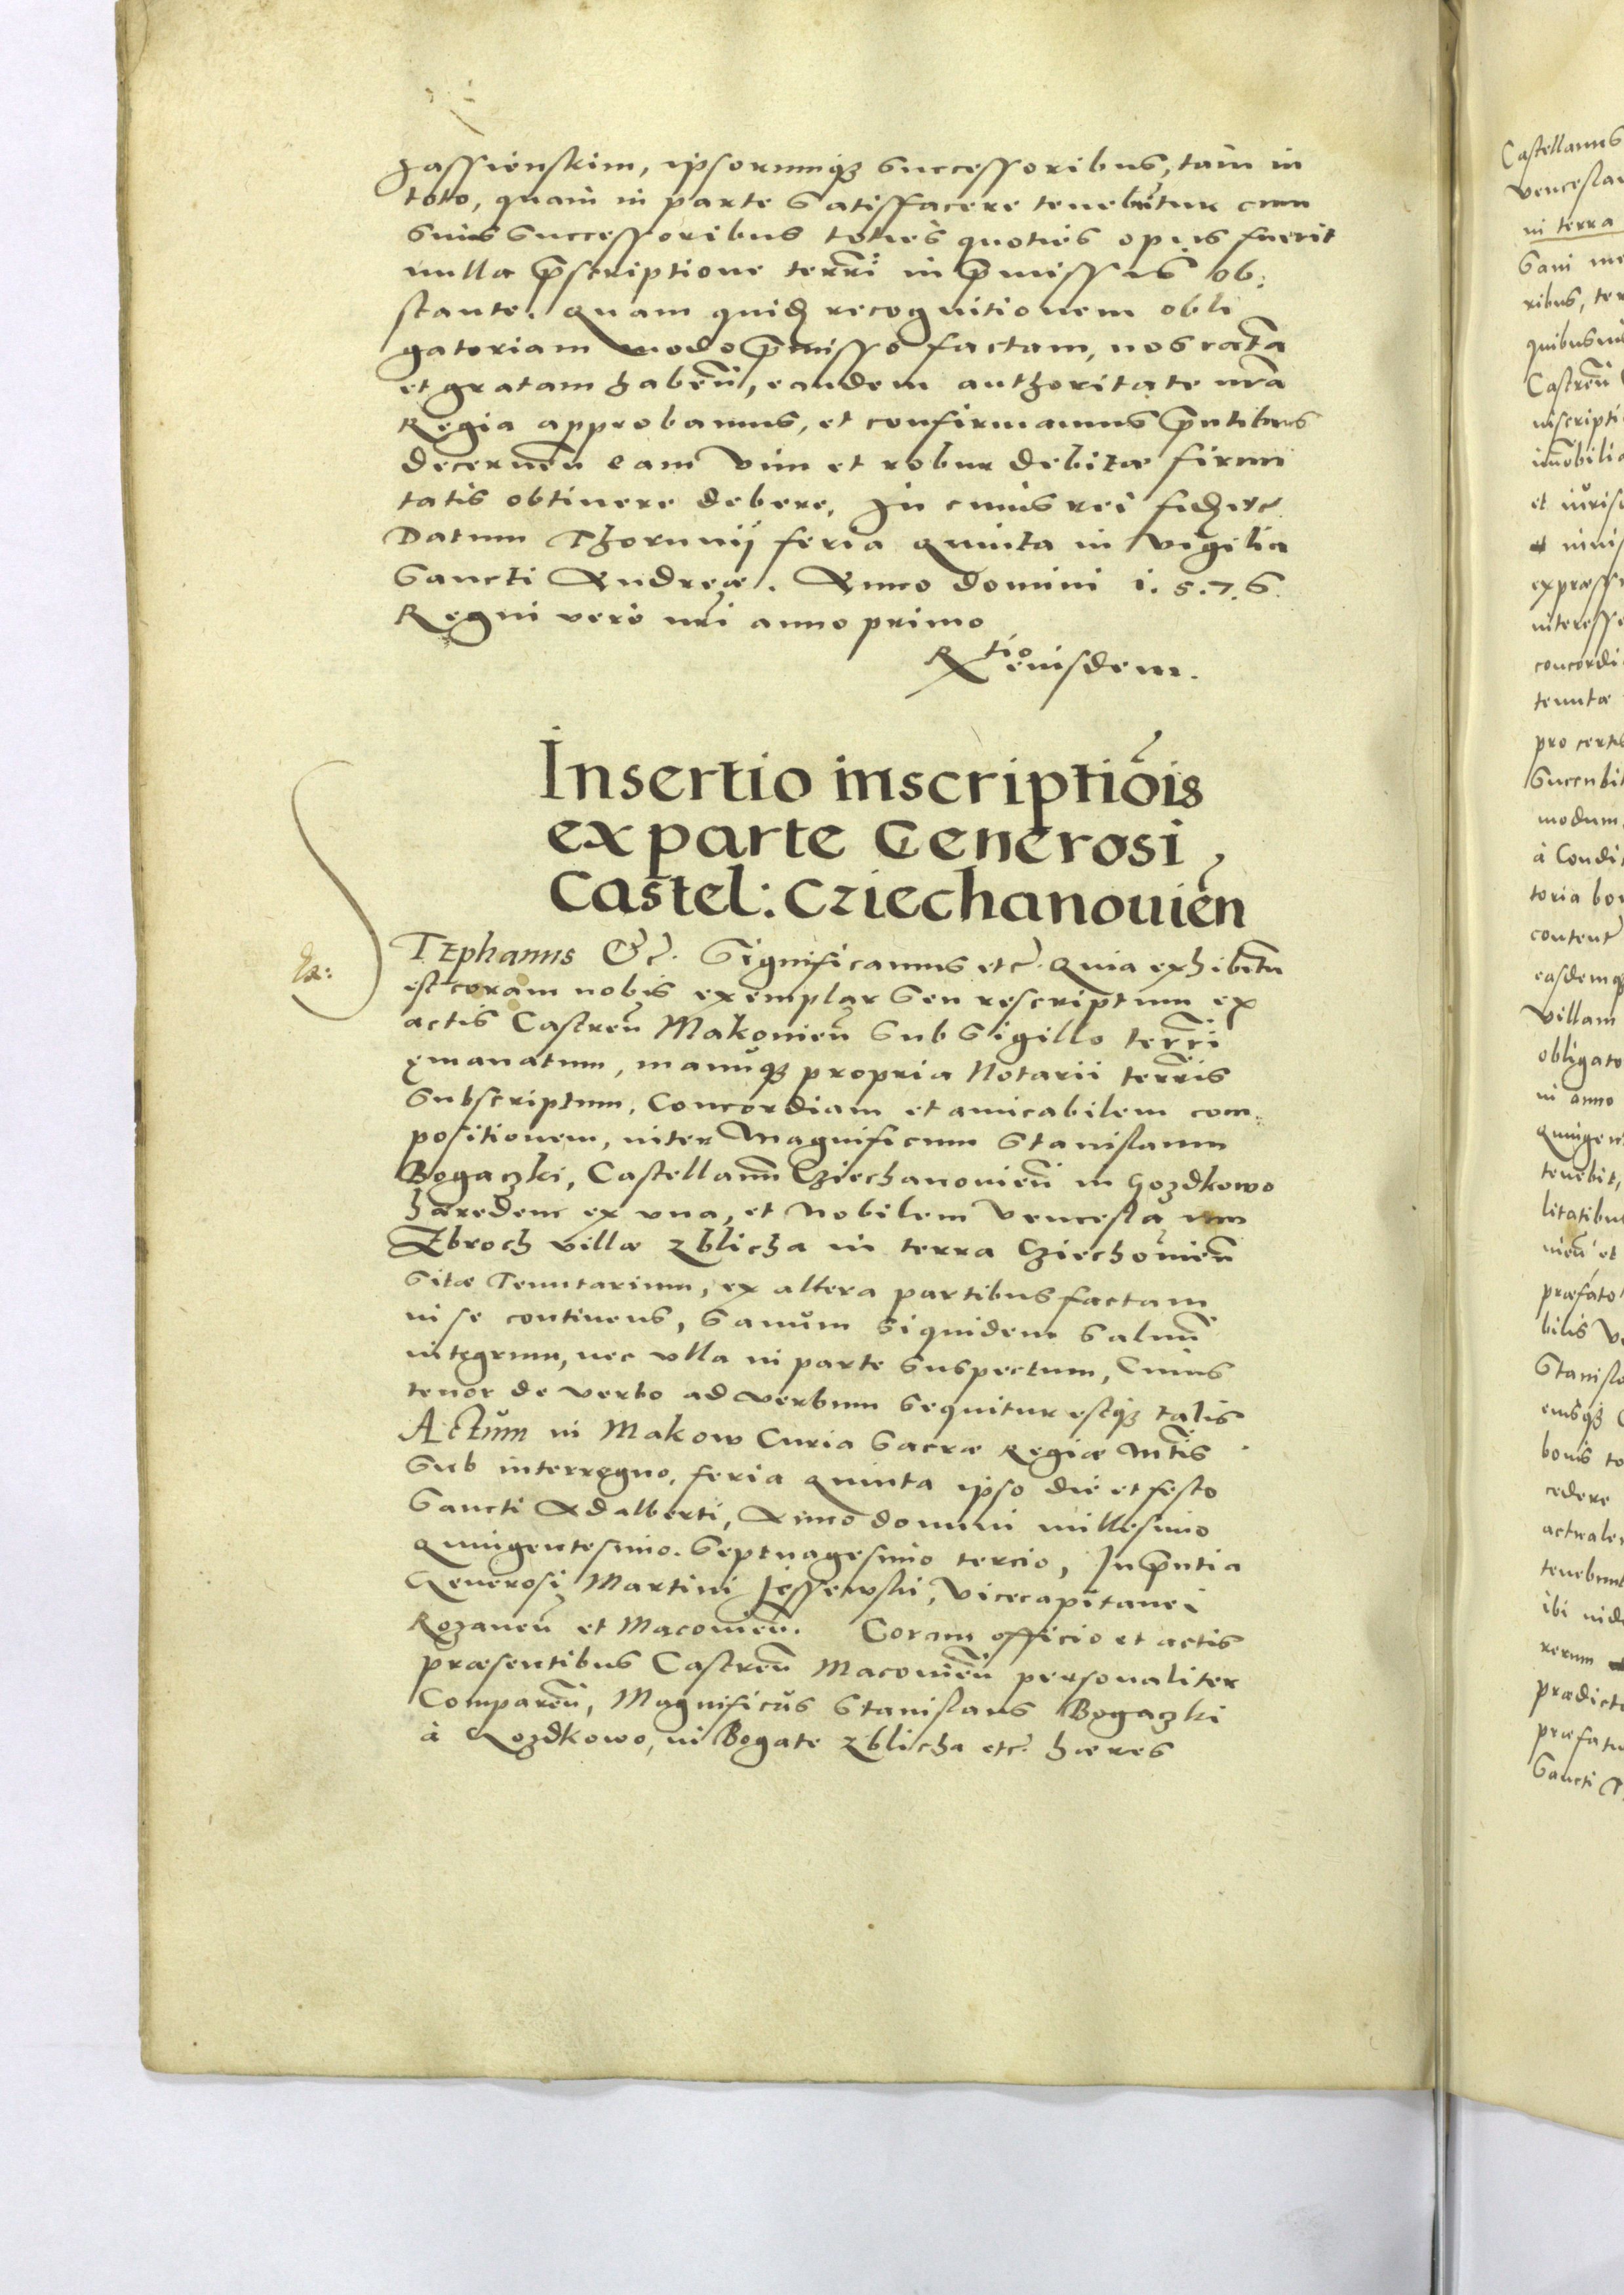 Jassienskim, ipsorumq₃ successoribus, tam in
toto, quam in parte satisfacere tenebitur cum
suis successoribus toties quoties opus fuerit
nulla p̄scriptione terrī in p̄missis ob:
stante. Quam quid recognitionem obli
gatoriam modo p̄misso factam, nos ratā
et gratam habeñ, eandem authoritate nrā
Regia approbamus, et confirmamus p̄ntibus
decerneñ eam vim et robur debitæ firmi
tatis obtinere debere, In cuius rei fid etc
Datum Thorunij feria quinta in vigilia
Sancti Andreæ. Anno domini 1.5.7.6.
Regni vero nrī anno primo
Rtio eiusdem.
Insertio inscriptiōis
ex parte Generosi
Castel: Cziechanouień
STEphanus &c. Significamus etc. Quia exhibitū
est coram nobis exemplar seu rescriptum ex
actis Castreñ Makouieñ sub sigillo terrī
emanatum, manuq₃ propria Notarii terrīs
subscriptum, Concordiam et amicabilem com:
positionem, inter Magnificum Stanislaum
Bogaczki, Castellanū Cziechanouieñ in Gozdkowo
hæredem ex una, et Nobilem Venceslaum
Zbroch villæ Zblicha in terra Cziechōuieñ
sitæ Tenutarium, ex altera partibus factam
in se continens, sanum siquidem saluū
integrum, nec ulla in parte suspectum, Cuius
tenor de verbo ad verbum sequitur estq₃ talis
Actum in Makow Curia Sacræ Regiæ Mtīs
sub interregno, feria quinta ipso die et festo
Sancti Adalberti, Anno domini millesimo
quingentesimo. Septuagesimo tercio, In p̄ntia
Generosi Martini Jessewski, Vicecapitanei
Rozaneñ et Macouieñ. Coram officio et actis
præsentibus Castreñ Macouieñ personaliter
Compareñ, Magnificus Stanislaus Bogaczki
à Gozdkowo, in Bogate Zblicha etc. hæres
Castellanus
in terra
ribus, ter
Castreñ
inscripti
concordi
tenutæ
modum,
à Condi
toria bo
Villam
obligato
in anno
tenebit,
præfato
bilis Ve
Stanisla
bonis to
cedere
prædict
præfatu
Sancti